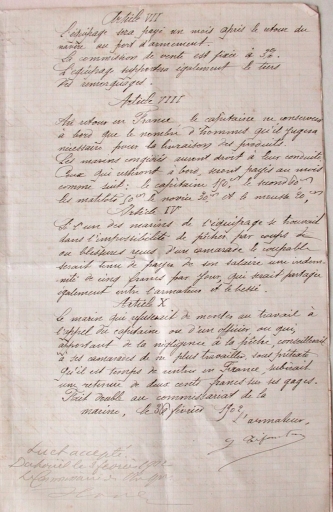 Article VII
L'équipage sera payé un mois après le retour du
navire au port d'armement.
La commission de vente est fixée à 3%.
L'équipage supportera également le tiers
des remorquages.
Article VIII
Au retour en France le capitaine ne conservera
à bord que le nombre d'hommes qu'il jugera
nécessaire pour la livraison des produits.
Les marins congédiés auront droit à leur conduite,
Ceux qui resteront à bord, seront payés au mois
comme suit: le capitaine le second
les matelots 50 le novice et le mousse 20
Article IX
Si l'un des marins de l'équipage se trouvait
dans l'impossibilité de pêcher par coups
ou blessures reçus d'un camarade le coupable
serait tenu de payer de son salaire une indem-
nité de cinq francs par jour, qui serait partagée
également entre l'armateur et le blessé.
Article X
Le marin qui refuserait de monter au travail à
l'appel du capitaine ou d'un officier ou qui
apportant de la négligence à la pêche, conseillerait
à ses camarades de ne plus travailler, sous prétexte
qu'il est temps de rentrer en France, subirait
une retenue de deux cents francs sur ses gages.
Fait double au commissariat de la
marine, le février 1902
L'armateur,